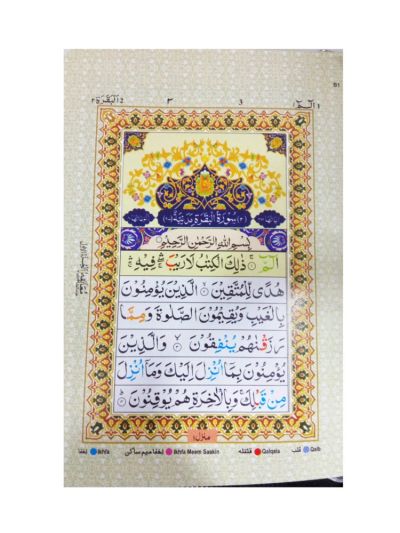 B1
البقرة ٢ 2 ٣ 3 الٓمّٓ ١
سُوْرَةُ الْبَقَرَةِ مَدَنِيَّةٌ
بِسْمِ اللّٰهِ الرَّحْمٰنِ الرَّحِيْمِ
الٓمّٓ ۚ ذٰلِكَ الْكِتٰبُ لَا رَيْبَ ۛ فِيْهِ ۛ
هُدًى لِّلْمُتَّقِيْنَ ۙ الَّذِيْنَ يُؤْمِنُوْنَ
بِالْغَيْبِ وَيُقِيْمُوْنَ الصَّلٰوةَ وَمِمَّا
رَزَقْنٰهُمْ يُنْفِقُوْنَ ۙ وَالَّذِيْنَ
يُؤْمِنُوْنَ بِمَآ اُنْزِلَ اِلَيْكَ وَمَآ اُنْزِلَ
مِنْ قَبْلِكَ ۚ وَبِالْاٰخِرَةِ هُمْ يُوْقِنُوْنَ ؕ
منزل ١
اخفا Ikhfa اخفا میم ساکن Ikhfa Meem Saakin قلقلہ Qalqala قلب Qalb